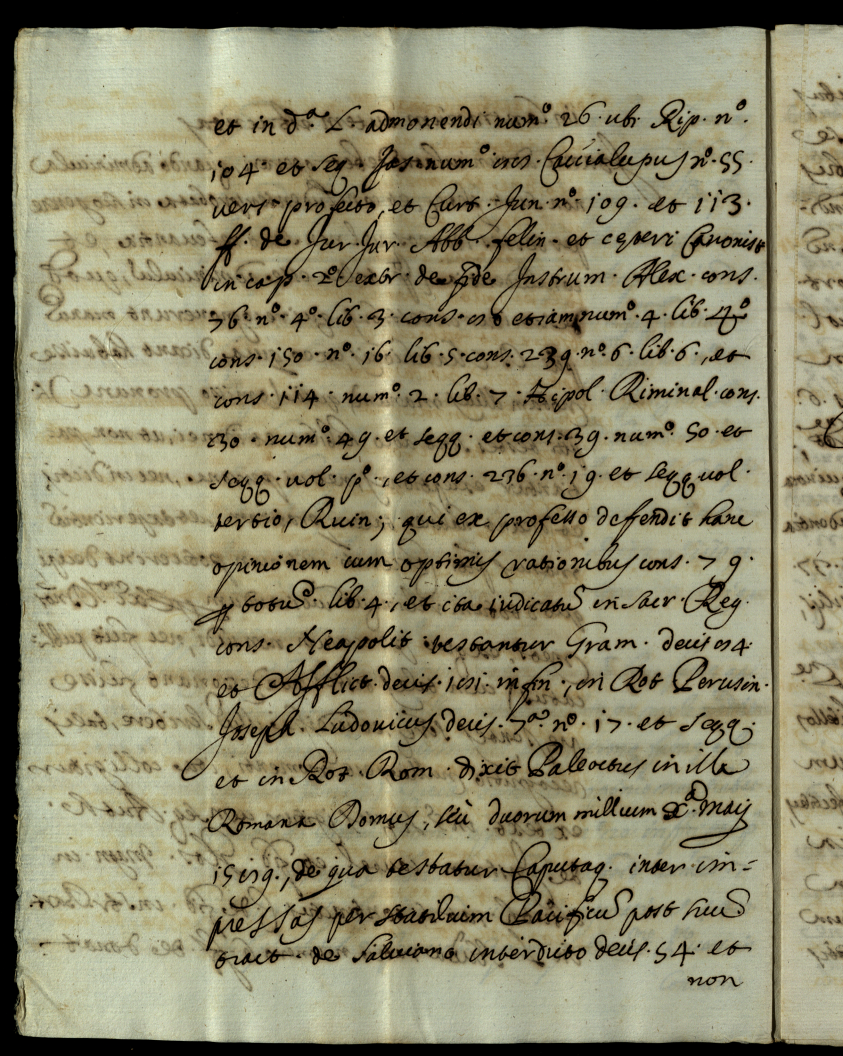 et in d.ª L. admonendi num.º 26. ubi Rip. n.º
104. et seq. Jas. num.º Caccialupus n.º 55.
vers. profecto, et Curt. Jun. n.º 109. et 113.
ff. de Jur. Jur. Abb. felin. et ceteri Canonist
in cap. 2.º extr. de fide Instrum. Alex. cons.
76. n.º 4.º lib. 3. cons. etiam num.º 4. lib. 4.º
cons. 150. n.º 16. lib. 5. cons. 239. n.º 6. lib. 6., et
cons. 114. num.º 2. lib. 7. Hipol. Riminal. cons.
130. num.º 49. et seqq. et cons. 39. num.º 50. et
seqq. vol. p.º, et cons. 236. n.º 19. et seqq. vol.
tertio, Ruin; qui ex professo defendit hanc
opinionem cum optimis rationibus cons. 79.
totu. lib. 4., et ita iudicatu in Sacr. Reg.
cons. Neapolit. testantur Gram. decis.
et Afflict. decis. in fin., in Rot. Perusin.
Joseph. Ludovicus decis. 7.ª n.º 17. et seqq.
et in Rot. Rom. dixit Paleotus in illa
Romana Domus, seu duorum millium
de qua testatur Caputaq. inter im=
pressas per Pacificu post suu
tract. de Salviano interdicto decis. 54. et
non